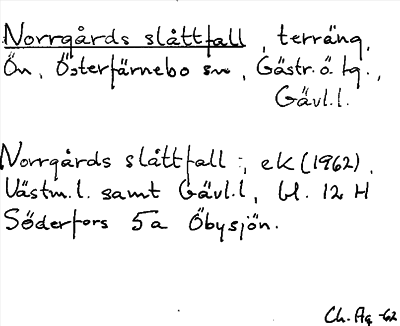 Norrgårds slåttfall, terräng,
Ön, Österfärnebo sn, Gästr. ö. tg.,
Gävl.l.
Norrgårds slåttfall :, ek (1962),
Västm.l. samt Gävl.l, bl. 12 H
Söderfors 5a Öbysjön.
Ch. Ag -62